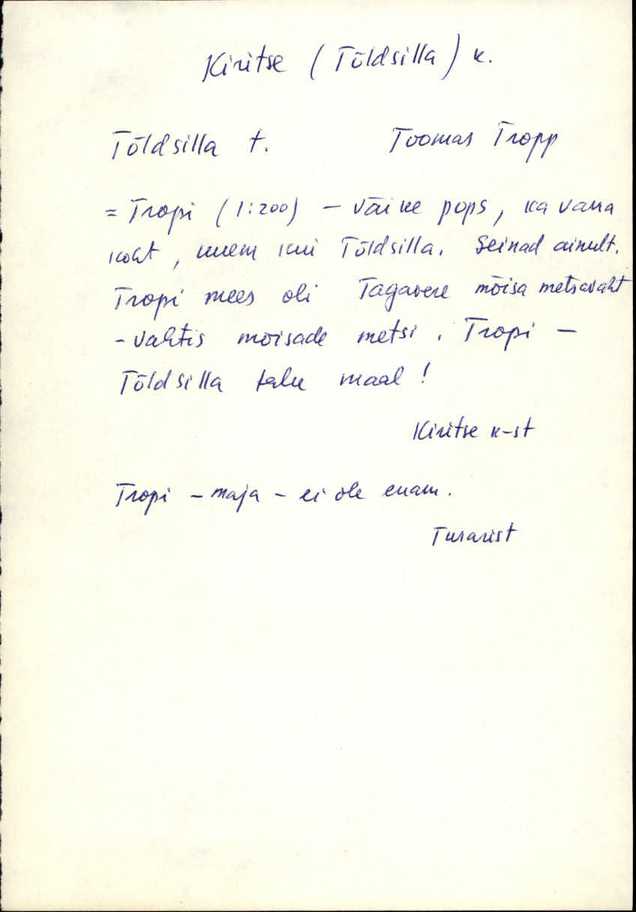 Kiritse (Tõldsilla) k.
Tõldsilla t. Toomas Tropp
= Tropi (1:200) – väike pops, ka vana
koht, uuem kui Tõldsilla. Seinad ainult.
Tropi mees oli Tagavere mõisa metsavaht
- vahtis mõisade metsi. Tropi –
Tõldsilla talu maal!
Kiritse k-st
Tropi - maja - ei ole enam.